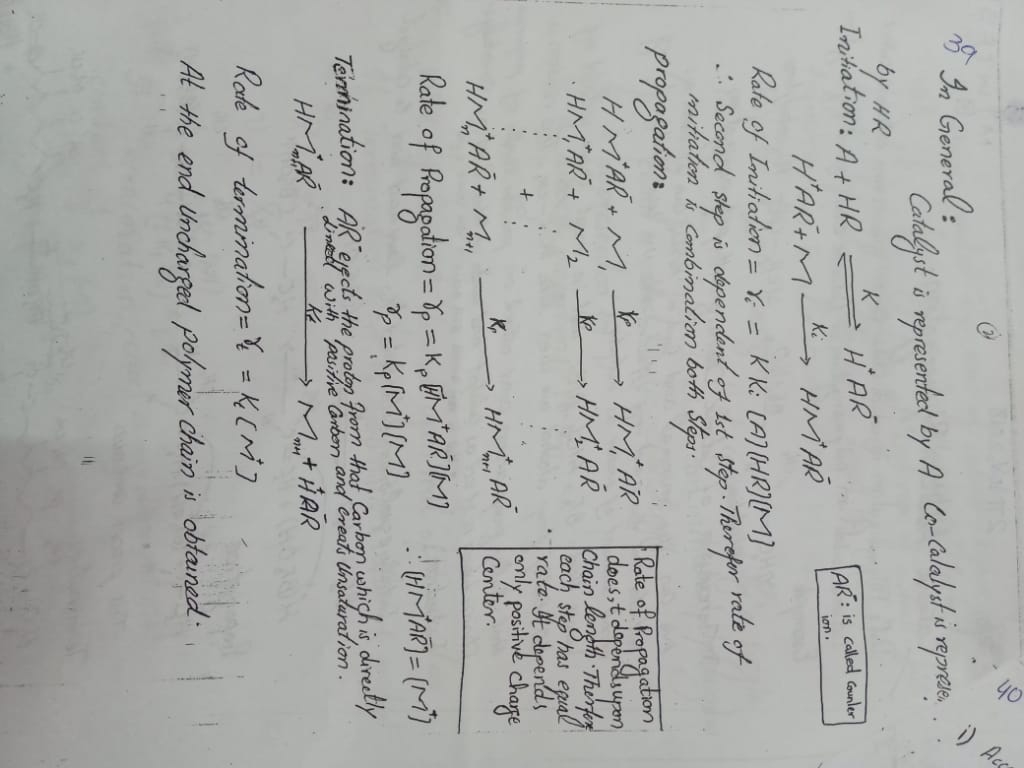 39
40
In General:
Catalyst is represented by A Co-Catalyst is represen
by HR
i) Acc
Initiation: A + HR ⇌ H⁺AR⁻
K
AR⁻: is called Counter
ion.
H⁺AR⁻ + M ⟶ HM⁺AR⁻
Ki
Rate of Initiation = ri = K Ki [A][HR][M]
∴ Second step is dependant of 1st step. Therefor rate of
initiation is combination both steps.
Propagation:
HM⁺AR⁻ + M₁ ⟶ HM₁⁺AR⁻
Kp
HM₁⁺AR⁻ + M₂ ⟶ HM₂⁺AR⁻
Kp
+
HMn⁺AR⁻ + Mn+1 ⟶ HMn+1⁺AR⁻
Rate of Propagation
does,t depends upon
Chain length. Therfore
each step has equal
rate. It depends
only positive charge
Center.
Rate of Propagation = rp = Kp [M⁺AR⁻][M]
rp = Kp [M⁺][M]
∴ [HM⁺AR⁻] = [M⁺]
Termination: AR⁻ ejects the proton from that Carbon which is directly
Linked with positive Carbon and creats Unsaturation.
⟶ Mn+1 + H⁺AR⁻
Kt
Rate of termination = rt = K[M⁺]
At the end Uncharged polymer chain is obtained.